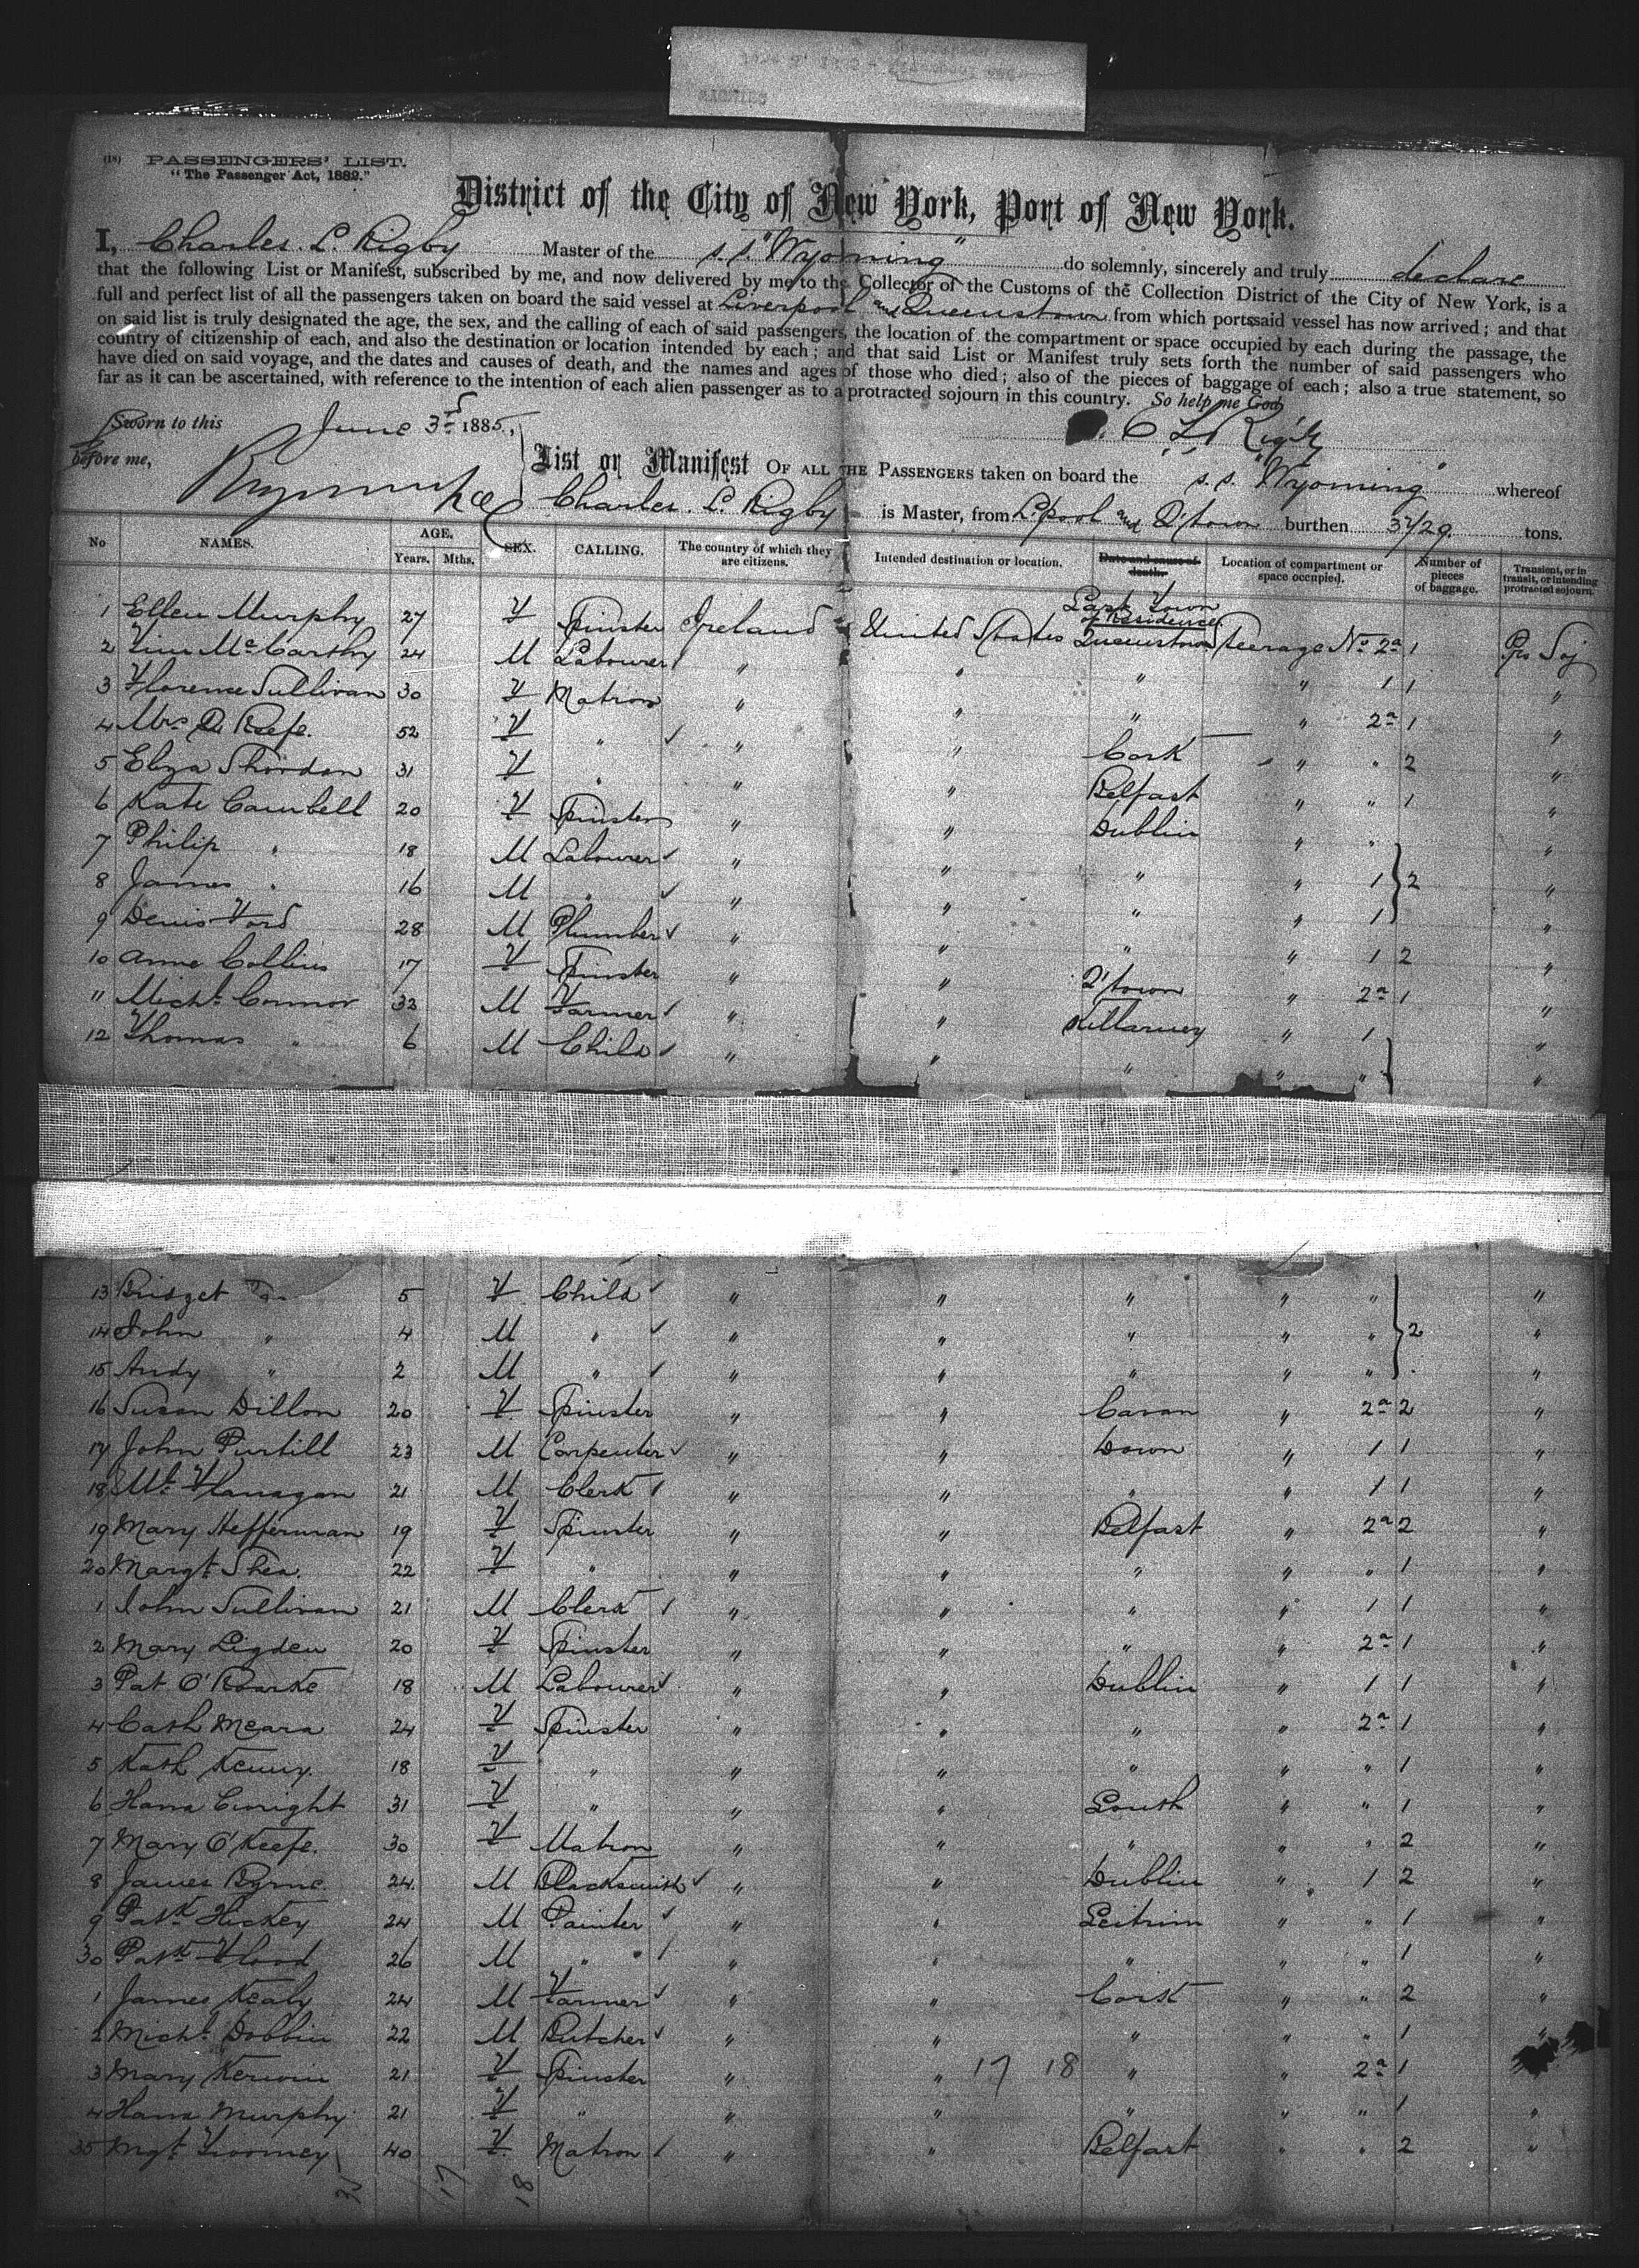 (18) PASSENGERS' LIST.
"The Passenger Act, 1882."
District of the City of New York, Port of New York.
I, Charles. L. Rigby Master of the s.s. "Wyoming" do solemnly, sincerely and truly declare
that the following List or Manifest, subscribed by me, and now delivered by me to the Collector of the Customs of the Collection District of the City of New York, is a
full and perfect list of all the passengers taken on board the said vessel at Liverpool and Queenstown from which ports said vessel has now arrived; and that
on said list is truly designated the age, the sex, and the calling of each of said passengers, the location of the compartment or space occupied by each during the passage, the
country of citizenship of each, and also the destination or location intended by each; and that said List or Manifest truly sets forth the number of said passengers who
have died on said voyage, and the dates and causes of death, and the names and ages of those who died; also of the pieces of baggage of each; also a true statement, so
far as it can be ascertained, with reference to the intention of each alien passenger as to a protracted sojourn in this country. So help me God
Sworn to this June 3rd 1885,
C L Rigby
before me,
List or Manifest OF ALL THE PASSENGERS taken on board the s.s. "Wyoming" whereof
Charles. L. Rigby is Master, from L'pool and Q'town burthen 3729. tons.
No NAMES. AGE. Years. Mths. SEX. CALLING. The country of which they are citizens. Intended destination or location. Date and cause of death. Location of compartment or space occupied. Number of pieces of baggage. Transient, or in transit, or intending protracted sojourn.
Last Town of Residence
1 Ellen Murphy 27 F Spinster Ireland United States Queenstown Steerage No 2a 1 Pro Soj
2 Tim McCarthy 24 M Labourer " " " " 1 1 "
3 Florence Sullivan 30 F Matron " " " " 2a 1 "
4 Mrs O. Keefe. 52 F " " " Cork " " 2 "
5 Eliza Shordan 31 F " " " Belfast " " 1 "
6 Kate Cambell 20 F Spinster " " Dublin " " "
7 Philip " 18 M Labourer " " " " 1 2 "
8 James " 16 M " " " " " 1 "
9 Denis Ford 28 M Plumber " " " " 1 2 "
10 Anne Collins 17 F Spinster " " Q'town " 2a 1 "
11 Michl. Connor 32 M Farmer " " Killarney " 1 "
12 Thomas " 6 M Child " " " " " "
13 Bridget Do 5 F Child " " " " " "
14 John " 4 M " " " " " " 2 "
15 Andy " 2 M " " " " " " "
16 Susan Dillon 20 F Spinster " " Cavan " 2a 2 "
17 John Purtill 23 M Carpenter " " Down " 1 1 "
18 Mt. Flanagan 21 M Clerk " " " " 1 1 "
19 Mary Hefferman 19 F Spinster " " Belfast " 2a 2 "
20 Margt. Shea. 22 F " " " " " " 1 "
1 John Sullivan 21 M Clerk " " " " 1 1 "
2 Mary Ligden 20 F Spinster " " " " 2a 1 "
3 Pat O'Rourke 18 M Labourer " " Dublin " 1 1 "
4 Cath Meara 24 F Spinster " " " " 2a 1 "
5 Kath Kenny. 18 F " " " " " " 1 "
6 Hana Enright 31 F " " " Louth " " 1 "
7 Mary O'Keefe. 30 F Matron " " " " " 2 "
8 James Byrne. 24. M Blacksmith " " Dublin " 1 2 "
9 Patk Hickey 24 M Painter " " Leitrim " " 1 "
30 Patk Flood 26 M " " " " " " 1 "
1 James Kealy 24 M Farmer " " Cork " " 2 "
2 Michl. Dobbin 22 M Butcher " " " " " 1 "
3 Mary Kerwin 21 F Spinster " " 17 18 " " 2a 1
4 Hana Murphy 21 F " " " " " " 1 "
35 Mgt. Twomey 40 F Matron " " Belfast " " 2 "
17 18